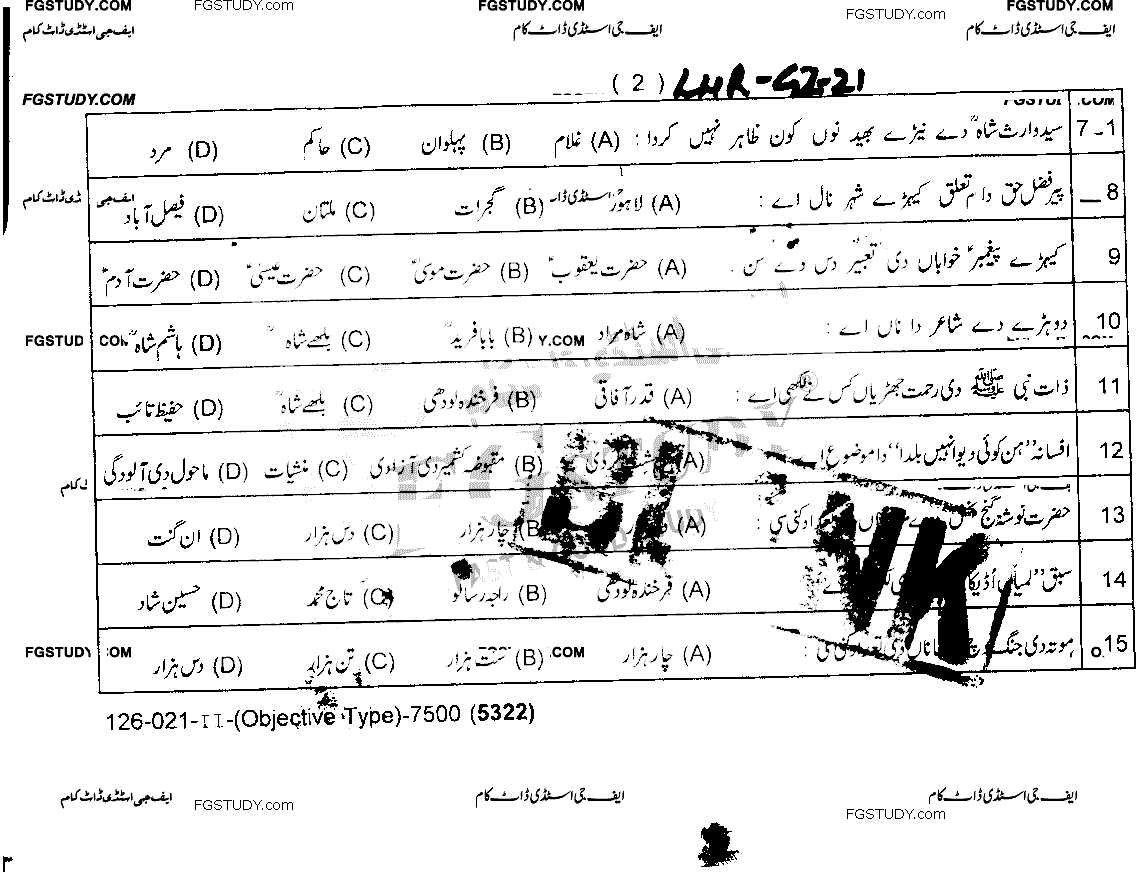 FGSTUDY.COM FGSTUDY.com FGSTUDY.COM FGSTUDY.com FGSTUDY.COM
ایف جی اسٹڈی ڈاٹ کام ایف جی اسٹڈی ڈاٹ کام ایف جی اسٹڈی ڈاٹ کام
( 2 ) LHR-G2-21
FGSTUDY.COM
7-1 سید وارث شاہؒ دے نیڑے بھید نوں کون ظاہر نہیں کردا : (A) غلام (B) پہلوان (C) حاکم (D) مرد
8 پیر فضل حق دا تعلق کیہڑے شہر نال اے : (A) لاہور (B) گجرات (C) ملتان (D) فیصل آباد
9 کیہڑے پیغمبرؑ خواباں دی تعبیر دس دے سن . (A) حضرت یعقوبؑ (B) حضرت موسیٰؑ (C) حضرت عیسیٰؑ (D) حضرت آدمؑ
10 دوہڑے دے شاعر دا ناں اے : (A) شاہ مراد (B) بابا فریدؒ (C) بلھے شاہؒ (D) ہاشم شاہؒ
11 ذات نبی ﷺ دی رحمت جھڑیاں کس نے لکھی اے : (A) قدر آفاقی (B) فرخندہ لودھی (C) بلھے شاہؒ (D) حفیظ تائب
12 افسانہ "ہن کوئی دیوا نہیں بلدا" دا موضوع اے (A) (B) مقبوضہ کشمیر دی آزادی (C) منشیات (D) ماحول دی آلودگی
13 حضرت نوشہ گنج کنی سی : (A) (B) چار ہزار (C) دس ہزار (D) ان گنت
14 سبق "لمیاں اُڈیکاں (A) فرخندہ لودھی (B) راجہ رسالو (C) تاج محمد (D) حسین شاد
15 موتہ دی جنگ وچ دی تعداد کنی سی : (A) چار ہزار (B) ہزار (C) تن ہزار (D) دس ہزار
126-021-II-(Objective Type)-7500 (5322)
ایف جی اسٹڈی ڈاٹ کام FGSTUDY.com ایف جی اسٹڈی ڈاٹ کام ایف جی اسٹڈی ڈاٹ کام
FGSTUDY.com